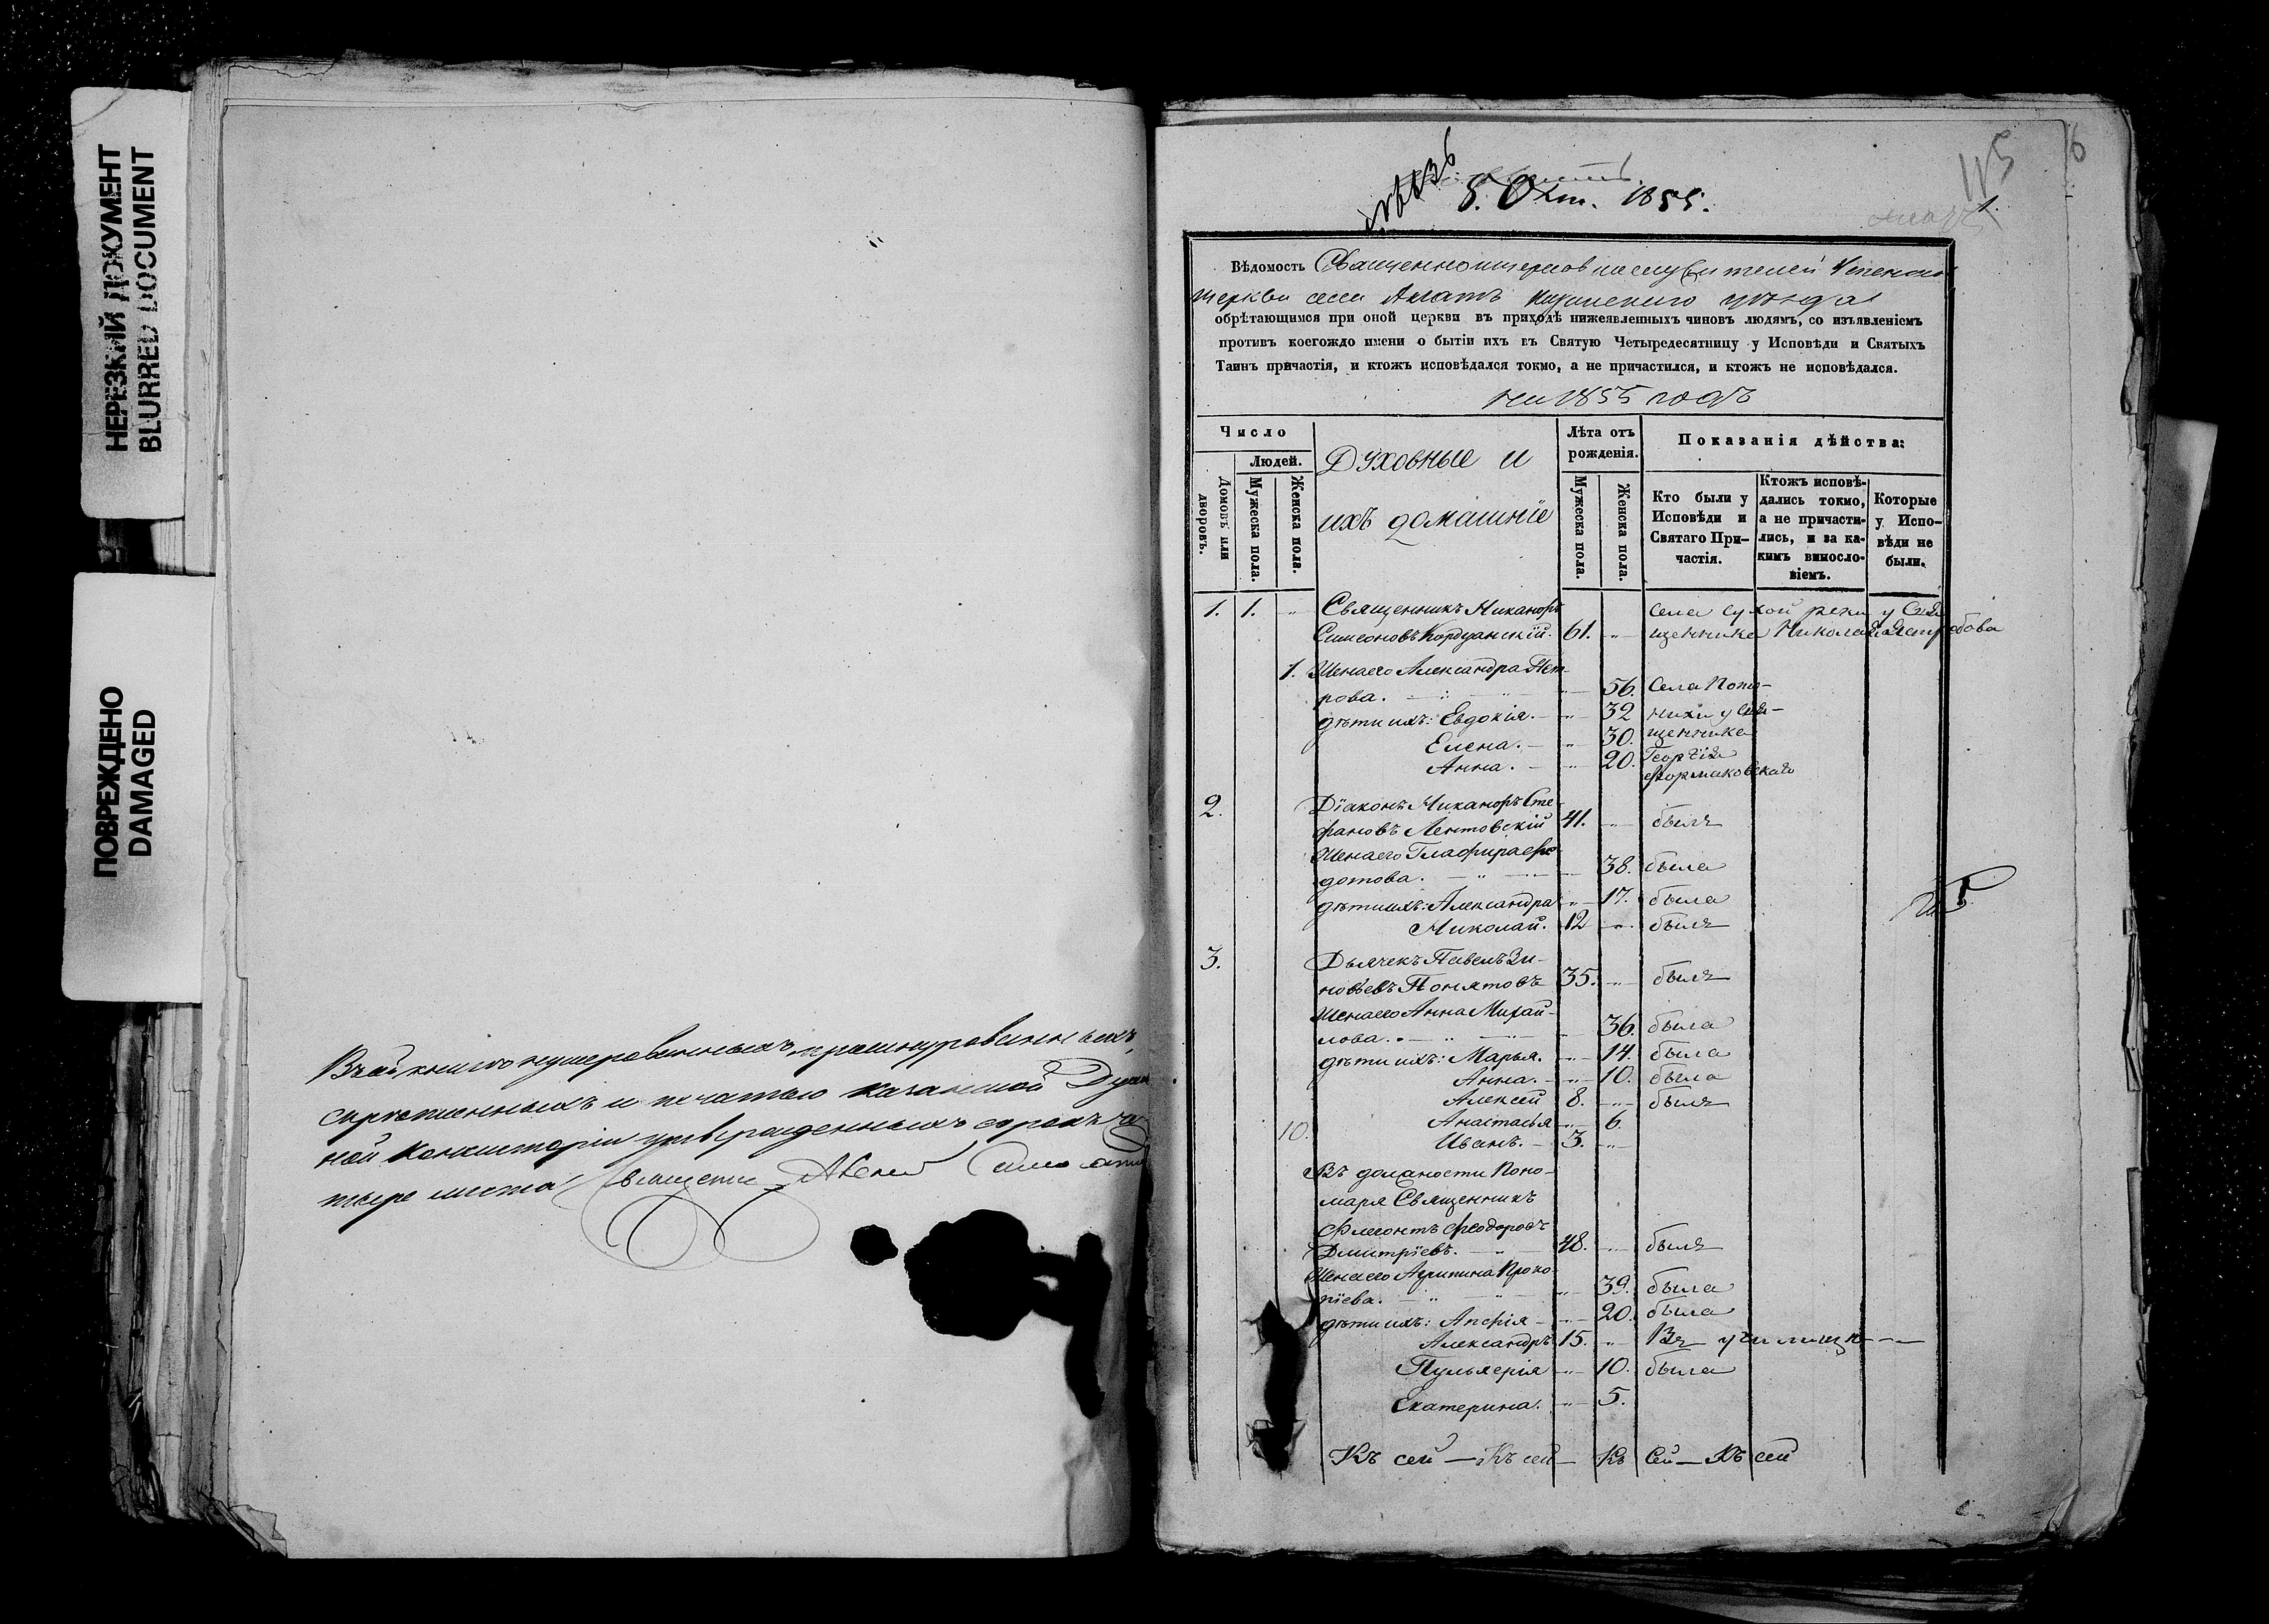 НЕРЕЗКИЙ ДОКУМЕНТ
BLURRED DOCUMENT
ПОВРЕЖДЕНО
DAMAGED
нумерованныхъ, прошнурованныхъ,
скрѣпленныхъ и печатью Казанской Духов
ной Консисторіи утвержденныхъ сорокъ че
тыре листа
115
6
1.
8. Окт. 1855.
Вѣдомость Священноцерковнослужителей Успенской
церкви села
обрѣтающимся при оной церкви въ приходѣ нижеявленныхъ чиновъ людямъ, со изъявленіемъ
противъ коегождо имени о бытіи ихъ въ Святую Четыредесятницу у Исповѣди и Святыхъ
Таинъ причастія, и ктожъ исповѣдался токмо, а не причастился, и ктожъ не исповѣдался.
на 1855 годъ
Число
Людей.
Домовъ или дворовъ.
Мужеска пола.
Женска пола.
Духовные и
ихъ домашніе
Лѣта отъ рожденія.
Мужеска пола.
Женска пола.
Показанія дѣйства:
Кто были у Исповѣди и Святаго При-
частія.
Ктожъ исповѣ-
дались токмо,
а не причасти-
лись, и за ка-
кимъ виносло-
віемъ.
Которые
у Испо-
вѣди не
были.
1. 1. Священникъ Никаноръ села сухой реки у Свя
Симеоновъ Кордуанскій. 61. щенника Николая Ястребова
1. Жена его Александра Пет-
рова. 56. Села
дѣти ихъ: Евдокія. 32 у Свя-
Елена. 30. щенника
Анна. 20. Георгія
2. Діаконъ Никаноръ Сте-
фановъ Лентовскій 41. былъ
Жена его Глафира Фе
дотова. 38. была
дѣти ихъ: Александра 17. была
Николай. 12 былъ
3. Дьячекъ Павелъ Зи-
новьевъ Понятовъ 35. былъ
Жена его Анна Михай-
лова. 36. была
дѣти ихъ: Марья. 14. была
Анна. 10. была
Алексей 8. былъ
Анастасья 6.
10. Иванъ. 3.
Въ должности Поно-
маря Священникъ
Филмонтъ Феодоровъ
Дмитріевъ. 48. былъ
Жена его Агрипина Проко-
піева. 39. была
дѣти ихъ: Анфія 20. была
Александръ 15. Въ училищѣ
Пульхерія 10. была
Екатерина. 5.
Къ сей — Къ сей — Къ Сей — Къ сей